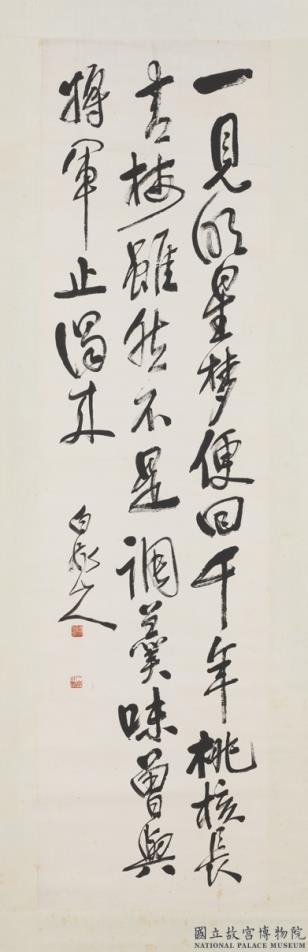 一見明星梦便回千年桃核長
青梅雖然不是調羹味曾與
將軍止渴来
白衣山人
國立故宮博物院
NATIONAL PALACE MUSEUM